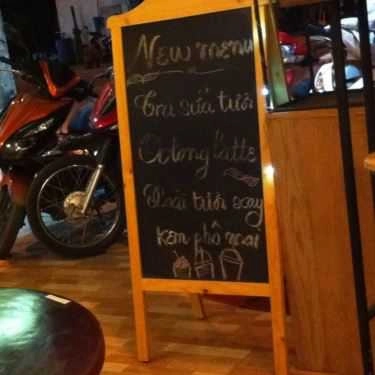 New menu
Trà sữa tươi
Oolong latte
tươi xay
kem phô mai